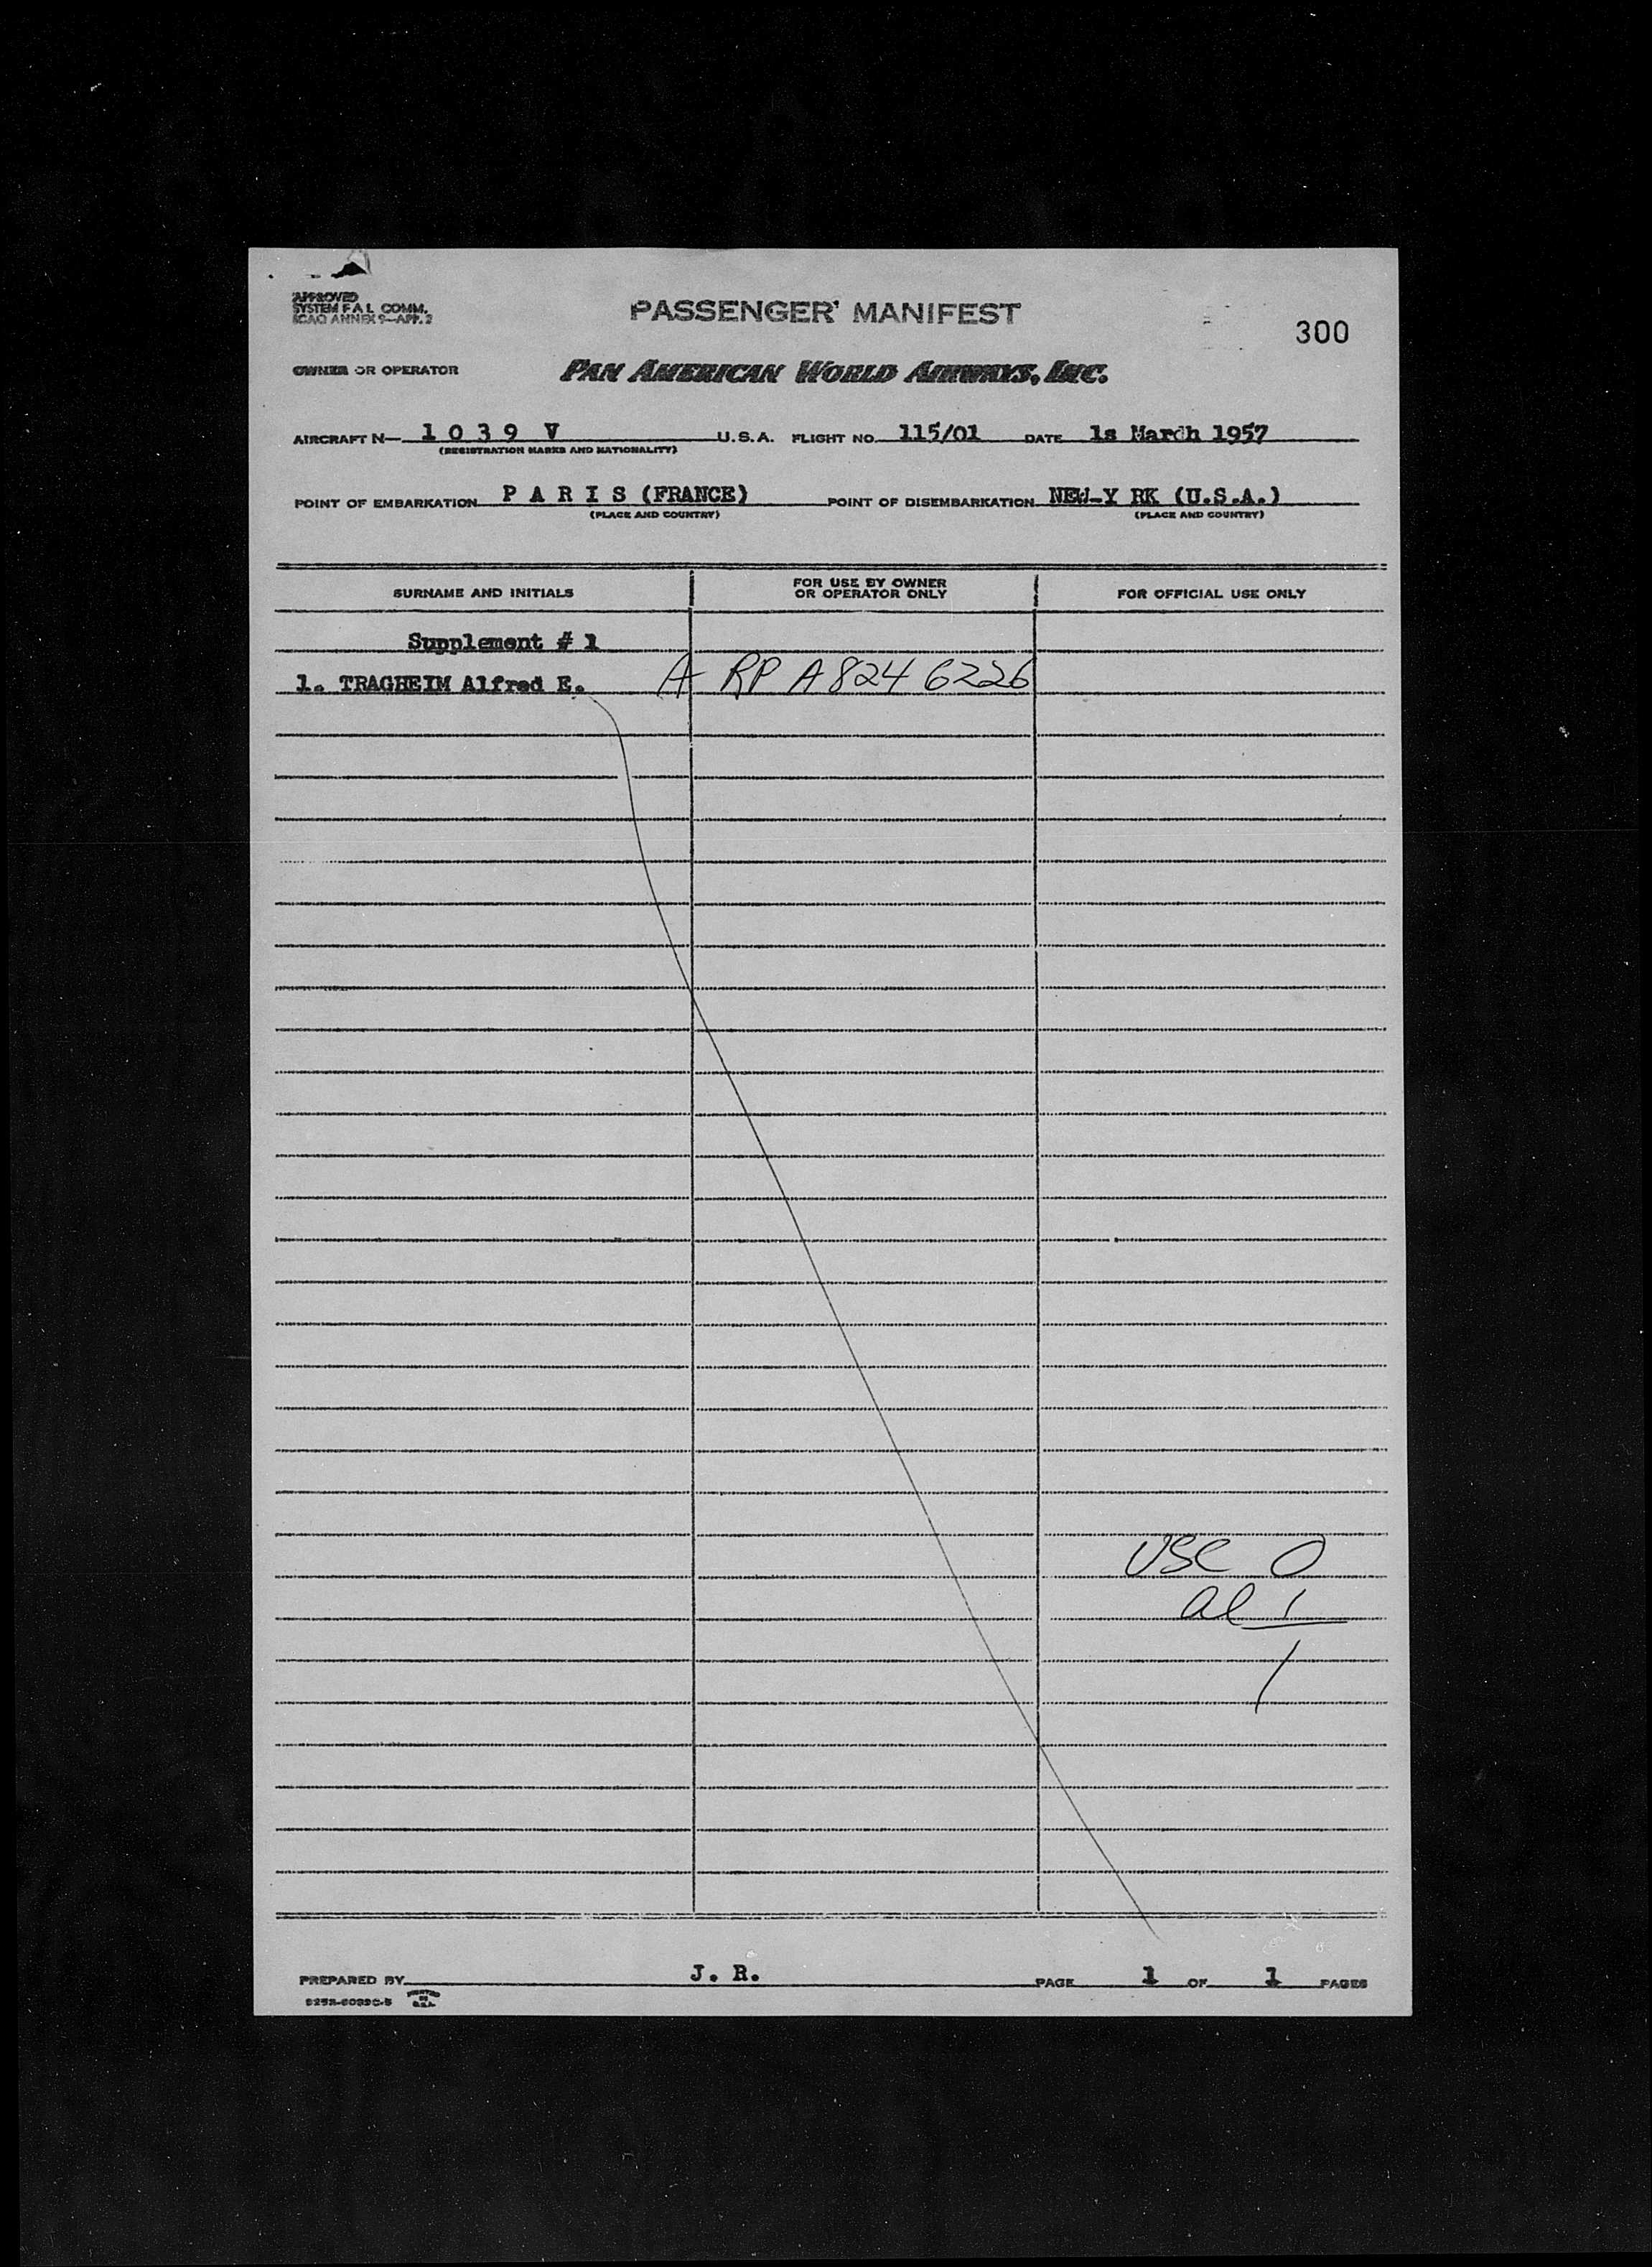 APPROVED
SYSTEM F A L COMM.
ICAO ANNEX 9—APP. 2
PASSENGER' MANIFEST
300
OWNER OR OPERATOR PAN AMERICAN WORLD AIRWAYS, INC.
AIRCRAFT N— 1 0 3 9 V U.S.A. FLIGHT NO. 115/01 DATE 1s March 1957
(REGISTRATION MARKS AND NATIONALITY)
POINT OF EMBARKATION P A R I S (FRANCE) POINT OF DISEMBARKATION NEW-Y RK (U.S.A.)
(PLACE AND COUNTRY) (PLACE AND COUNTRY)
SURNAME AND INITIALS FOR USE BY OWNER OR OPERATOR ONLY FOR OFFICIAL USE ONLY
Supplement # 1
1. TRAGHEIM Alfred E. A RP A824 6226
USC 0
al 1
1
PREPARED BY J. R. PAGE 1 OF 1 PAGES
PRINTED IN U.S.A.